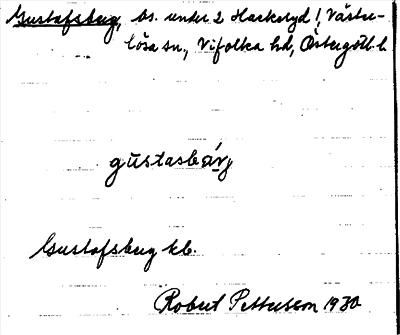 Gustafsberg, bs. under 2 Hackeryd!, Väster-
lösa sn., Vifolka hd, Östergötl. l.
gustasbärj
Gustafsberg kb.
Robert Pettersson 1930